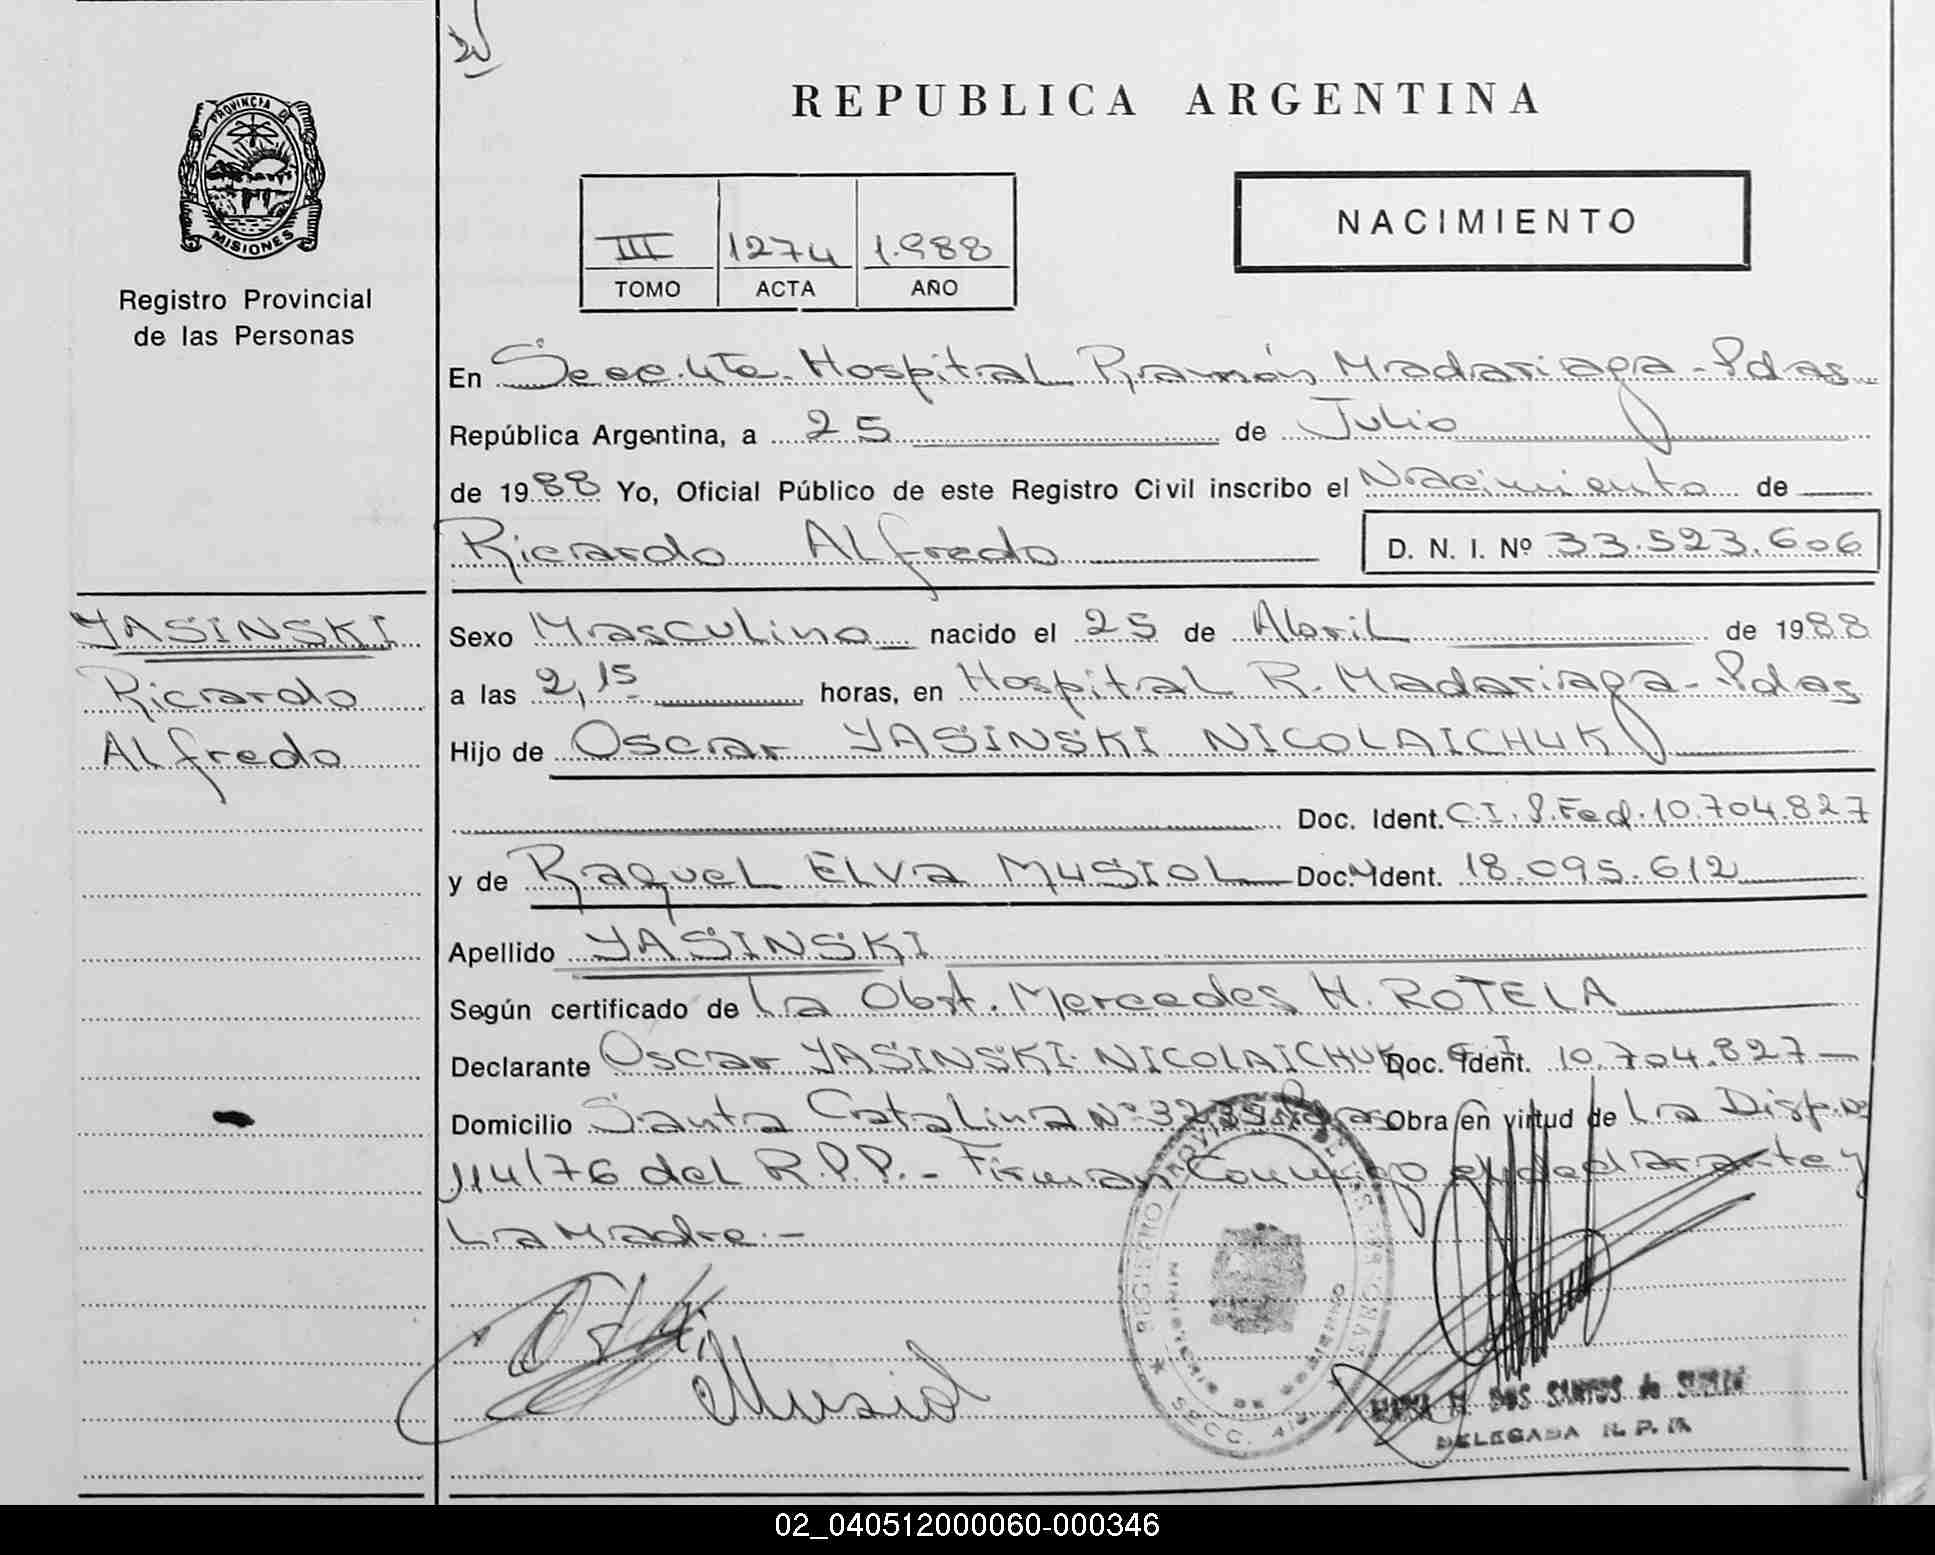 PROVINCIA DE
MISIONES
Registro Provincial
de las Personas
REPUBLICA ARGENTINA
III 1274 1.988
TOMO ACTA AÑO
NACIMIENTO
En Secc. 4ta. Hospital Ramón Madariaga - Pdas.
República Argentina, a 25 de Julio
de 1988 Yo, Oficial Público de este Registro Civil inscribo el Nacimiento de
Ricardo Alfredo D. N. I. Nº 33.523.606
YASINSKI
Ricardo
Alfredo
Sexo Masculino nacido el 25 de Abril de 1988
a las 2,15 horas, en Hospital R. Madariaga - Pdas
Hijo de Oscar YASINSKI NICOLAICHUK
Doc. Ident. C.I. P. Fed. 10.704.827
y de Raquel Elva MUSIOL Doc. Ident. 18.095.612
Apellido YASINSKI
Según certificado de la Obst. Mercedes H. ROTELA
Declarante Oscar YASINSKI NICOLAICHUK Doc. Ident. C.I 10.704.827
Domicilio Santa Catalina Nº Pdas Obra en virtud de La Disp. Nº
114/76 del R.P.P. - Firman Conmigo el declarante y
La Madre. -
Musiol
REGISTRO PROVINCIAL DE LAS PERSONAS
MINISTERIO DE GOBIERNO
SECC.
M. DOS SANTOS de
DELEGADA R. P. P.
02_040512000060-000346